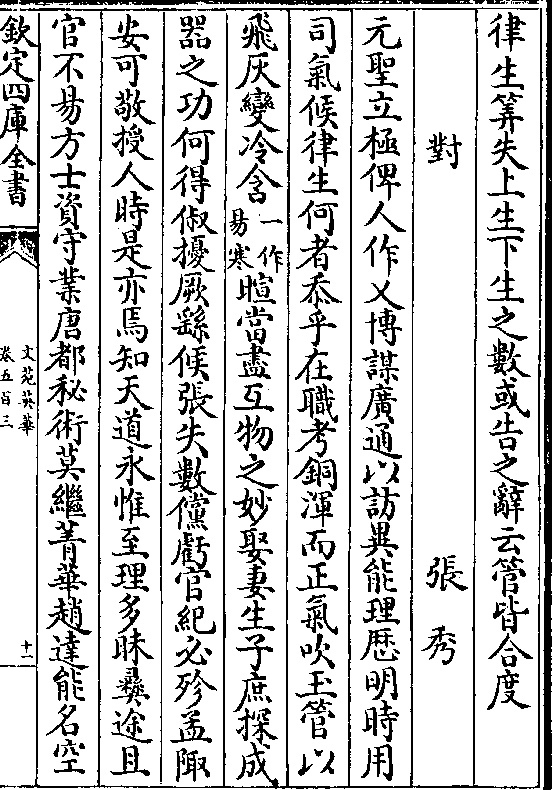 律生筭失上生下生之數或告之辭云管皆合度
對 張秀
元聖立極俾人作乂博謀廣通以訪異能理厯明時用
司氣候律生何者忝乎在職考銅渾而正氣吹玉管以
飛灰變冷含一作易寒暄當盡互物之妙娶妻生子庶探成
器之功何得俶擾厥繇候張失數儻虧官紀必殄孟陬
安可敬授人時是亦焉知天道永惟至理多昧彝途且
官不易方士資守業唐都秘術莫繼菁華趙達能名空
欽定四庫全書
文苑英華
卷五百三
十一